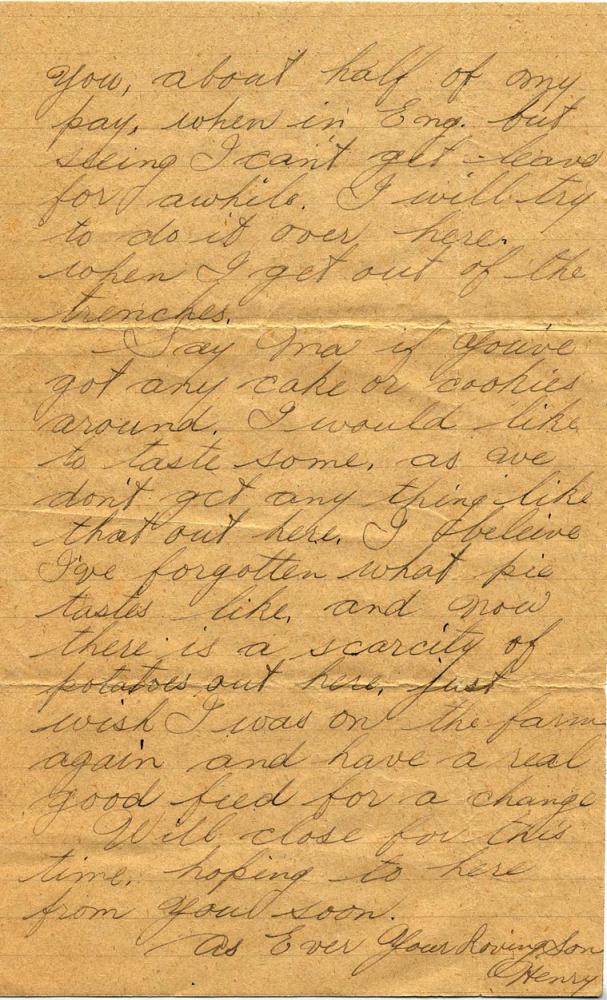 You, about half of my
pay, when in Eng. but
seeing I can't get leave
for awhile. I will try
to do it over here.
when I get out of the
trenches.
Say Ma if you've
got any cake or cookies
around. I would like
to taste some, as we
don't get any thing like
that out here. I beleive
I've forgotten what pie
tastes like, and now
there is a scarcity of
potatoes out here, just
wish I was on the farm
again and have a real
good feed for a change
Will close for this
time, hoping to here
from you soon.
As Ever Your Loving Son
Henry